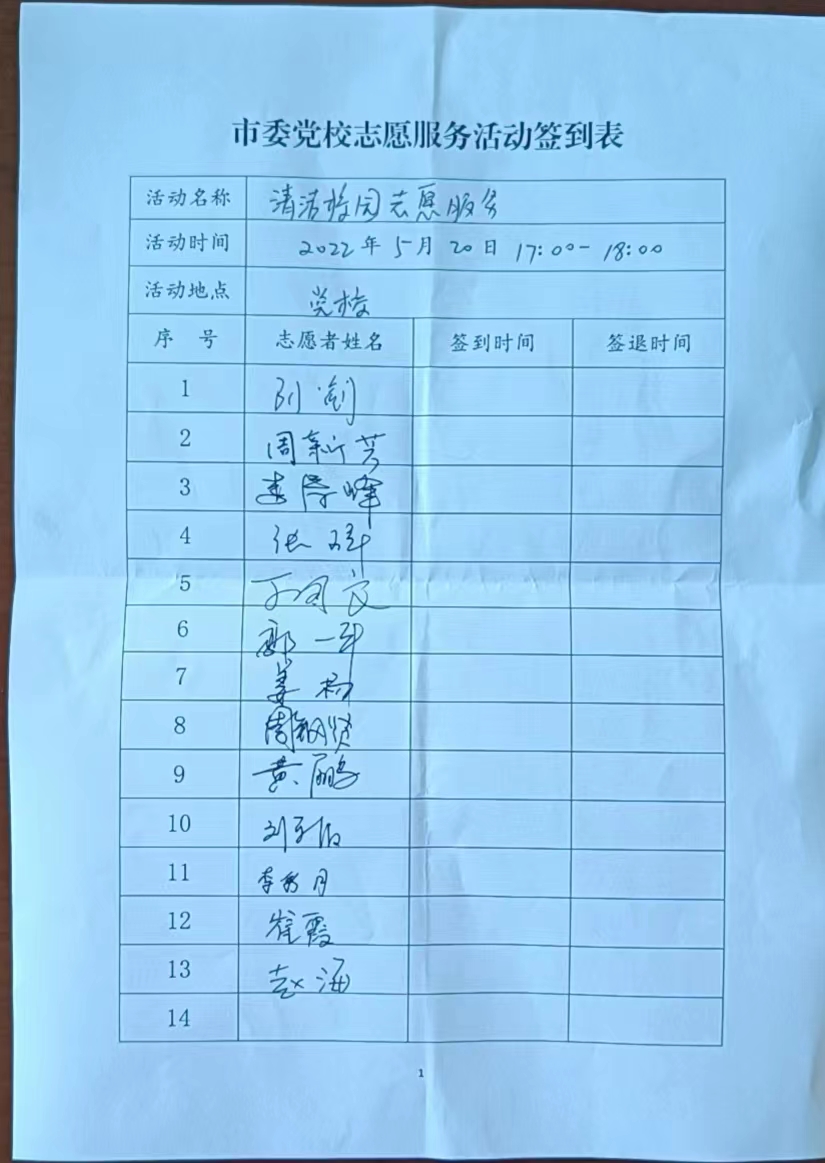 市委党校志愿服务活动签到表
活动名称 清洁校园志愿服务
活动时间 2022年5月20日 17:00-18:00
活动地点 党校
序 号 志愿者姓名 签到时间 签退时间
1
2 周新芳
3 峰
4 张
5
6 郭一
7 姜
8 周
9 黄鹏
10 刘
11 李 月
12 崔霞
13 赵海
14
1